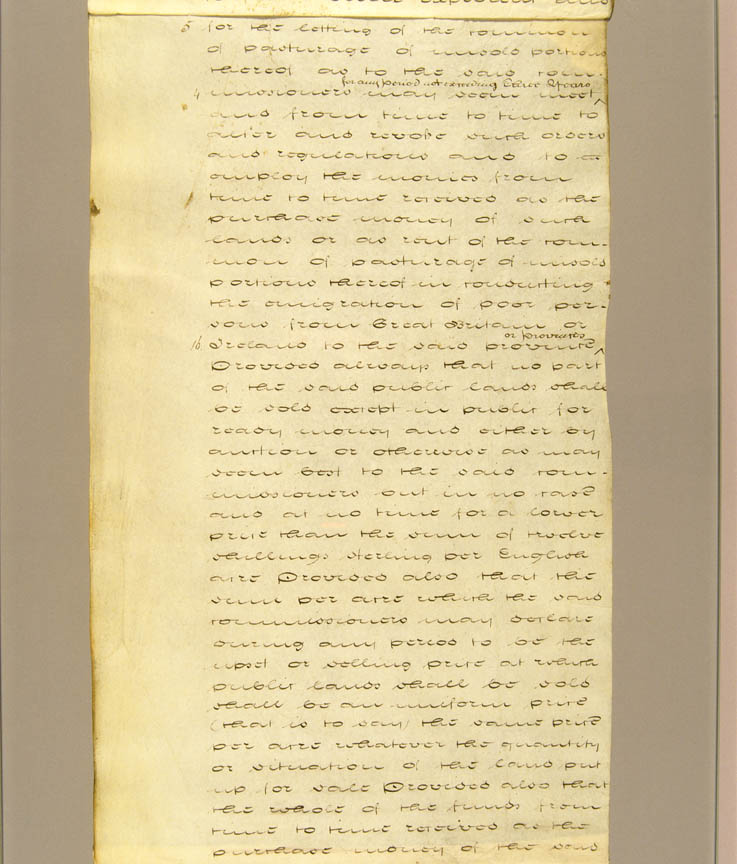 5 for the letting of the common
of pasturage of unsold portions
thereof as to the said Com-
for any period not exceeding three Years
4 missioners may seem meet ^
and from time to time to
alter and revoke such orders
and regulations and to
employ the monies from
time to time received as the
purchase money of such
lands or as rent of the com-
mon of pasturage of unsold
portions thereof in conducting
the emigration of poor per-
sons from Great Britain or
or provinces
16 Ireland to the said province ^
Provided always that no part
of the said public lands shall
be sold except in public for
ready money and either by
auction or otherwise as may
seem best to the said Com-
missioners but in no case
and at no time for a lower
price than the sum of twelve
shillings sterling per English
acre Provided also that the
sum per acre which the said
Commissioners may declare
during any period to be the
upset or selling price at which
public lands shall be sold
shall be an uniform price
(that is to say) the same price
per acre whatever the quantity
or situation of the land put
up for sale Provided also that
the whole of the funds from
time to time received as the
purchase money of the said